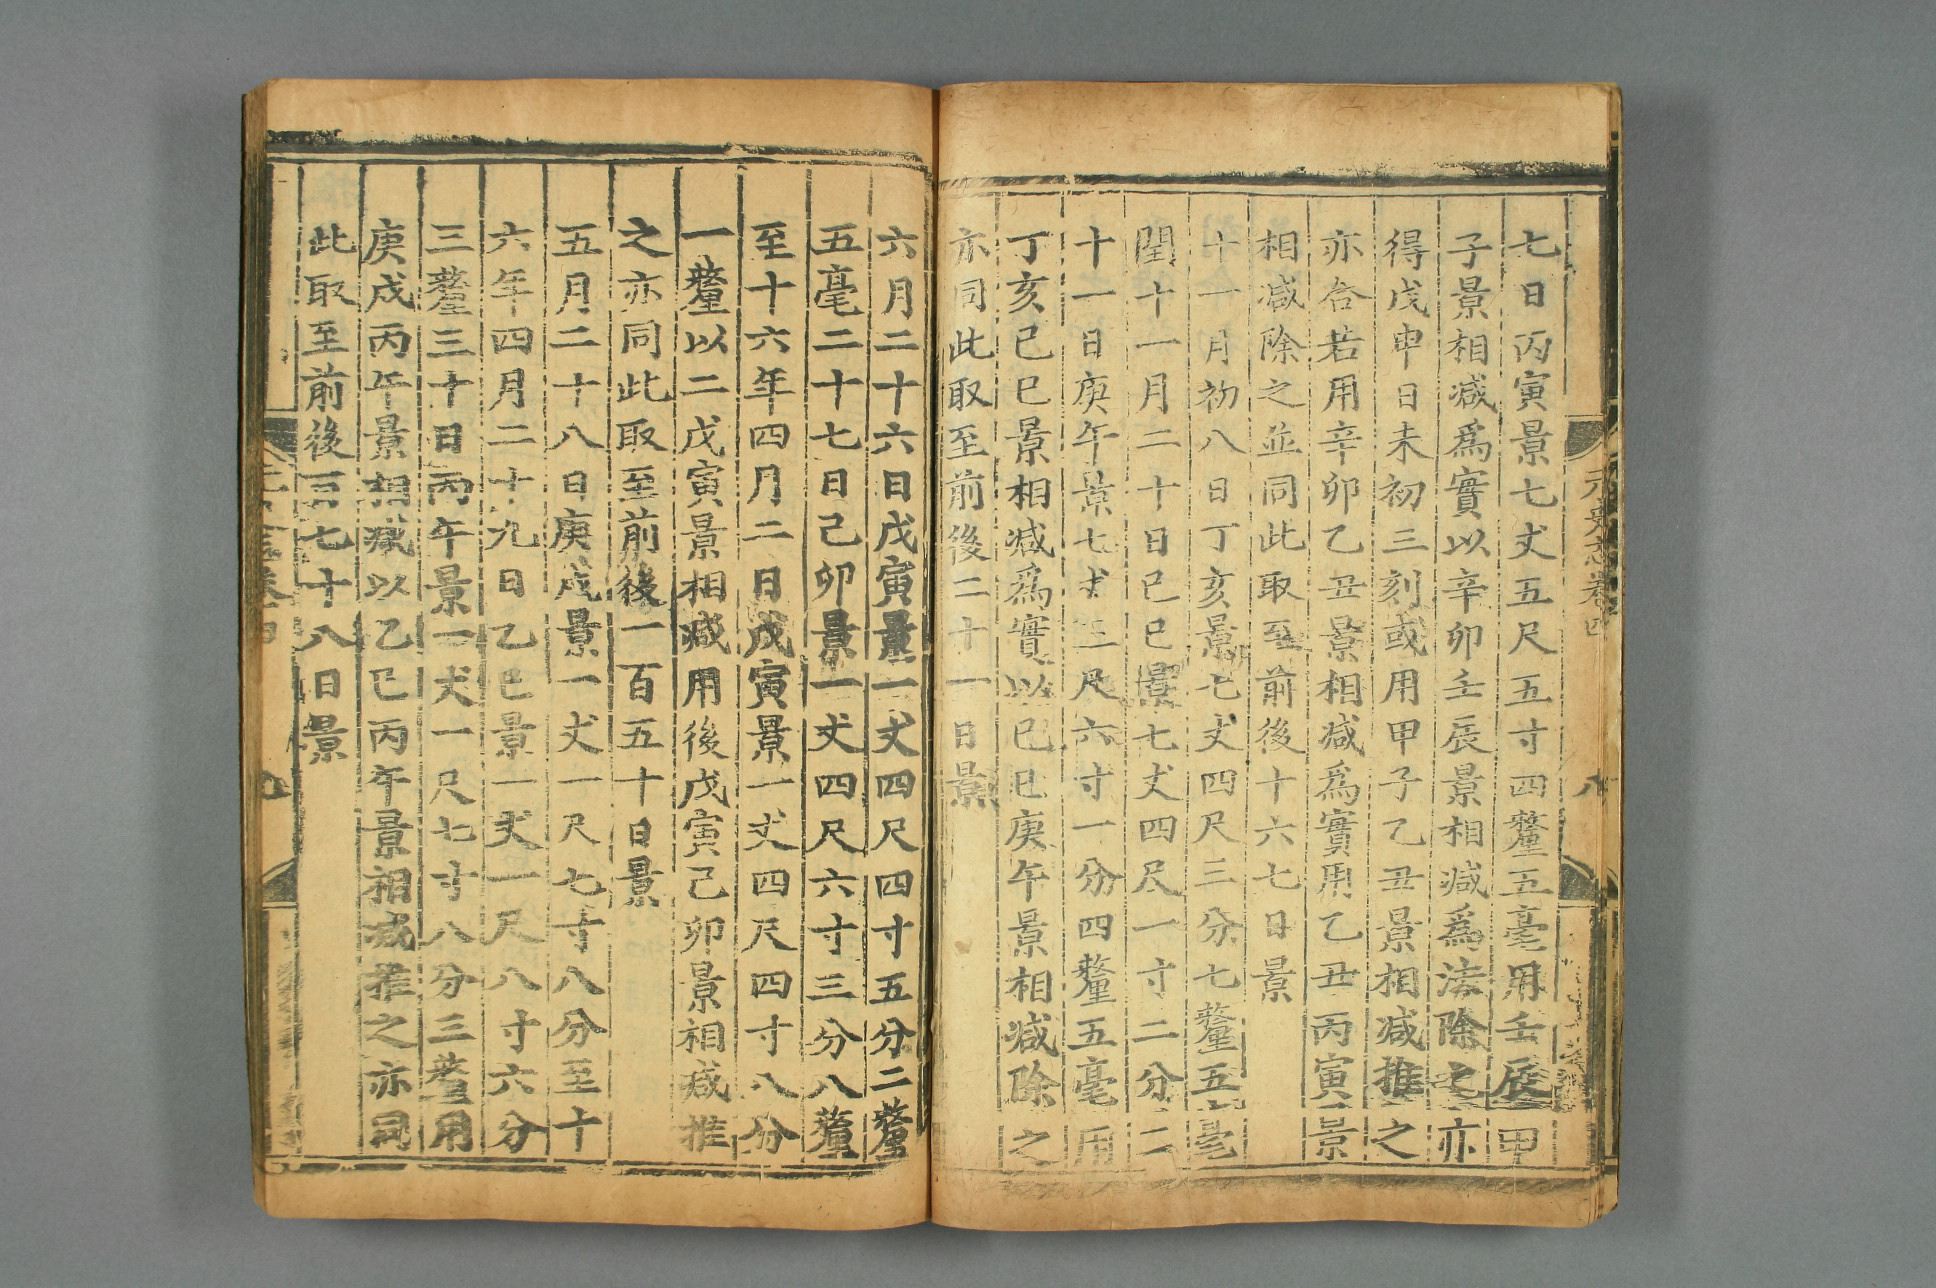 元史志卷四
八
七日丙寅景七丈五尺五寸四釐五毫用壬辰甲
子景相減爲實以辛卯壬辰景相減爲法除之亦
得戊申日未初三刻或用甲子乙丑景相減推之
亦合若用辛卯乙丑景相減爲實用乙丑丙寅景
相減除之並同此取至前後十六七日景
十一月初八日丁亥景七丈四尺三分七釐五毫
閏十一月二十日己巳景七丈四尺一寸二分二
十一日庚午景七丈三尺六寸一分四釐五毫用
丁亥己巳景相減爲實以己巳庚午景相減除之
亦同此取至前後二十一日景
六月二十六日戊寅景一丈四尺四寸五分二釐
五毫二十七日己卯景一丈四尺六寸三分八釐
至十六年四月二日戊寅景一丈四尺四寸八分
一釐以二戊寅景相減用後戊寅己卯景相減推
之亦同此取至前後一百五十日景
五月二十八日庚戌景一丈一尺七寸八分至十
六年四月二十九日乙巳景一丈一尺八寸六分
三釐三十日丙午景一丈一尺七寸八分三釐用
庚戌丙午景相減以乙巳丙午景相減推之亦同
此取至前後百七十八日景
九